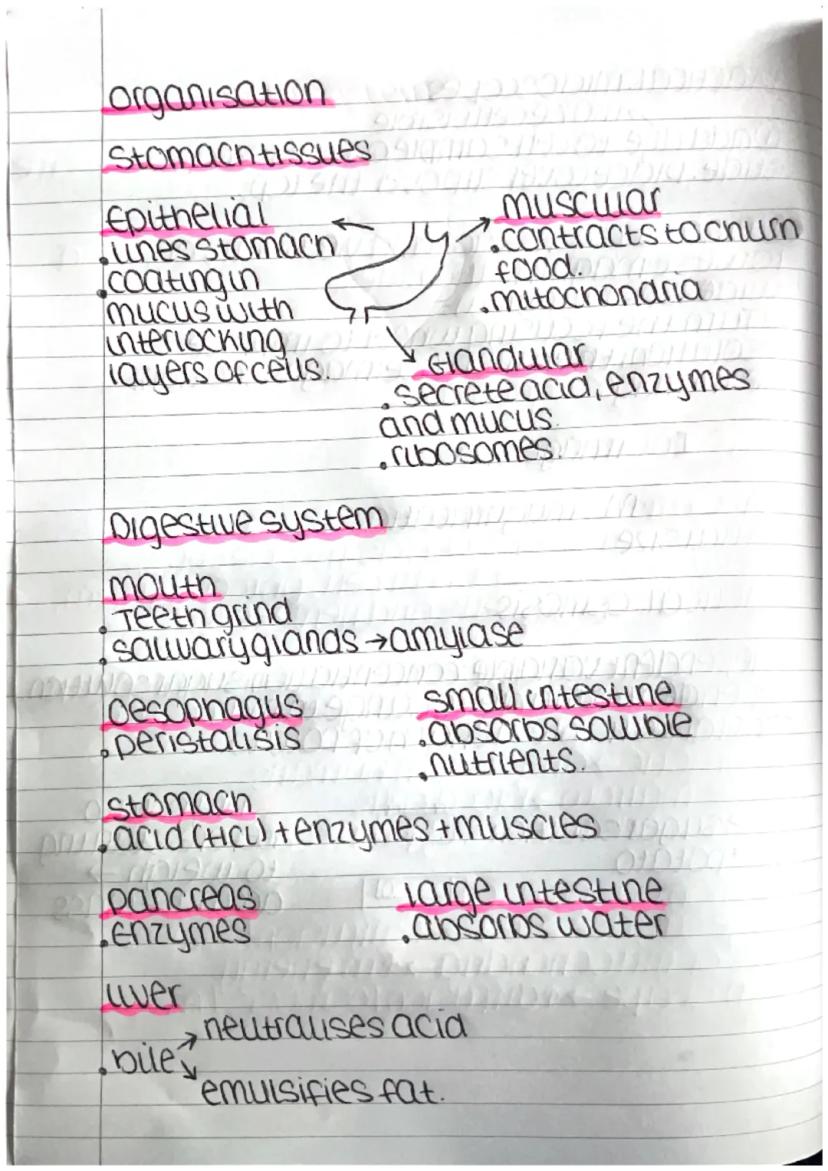 Organisation
Stomach tissues
Epithelial
. lines stomach
. coating in
mucus with
interlocking
layers of cells.
Muscular
. contracts to churn
food.
. mitochondria
Glandular
. secrete acid, enzymes
and mucus.
. ribosomes.
Digestive system
mouth
. Teeth grind
. salivary glands → amylase
Oesophagus
. peristalisis
small intestine
. absorbs soluble
. nutrients.
Stomach
. acid (HCl) + enzymes + muscles
pancreas
. enzymes
large intestine
. absorbs water
liver
. bile
→ neutralises acid
→ emulsifies fat.